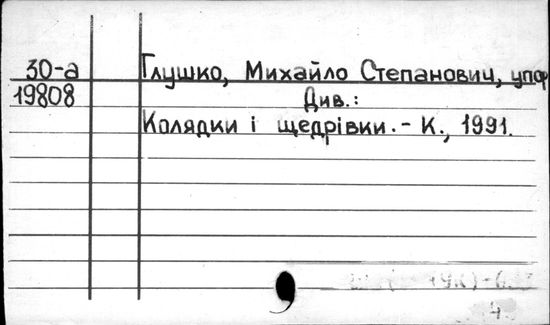 30-а Глушко, Михайло Степанович, упор
19808 Див.:
Колядки і щедрівки. - К., 1991.
4